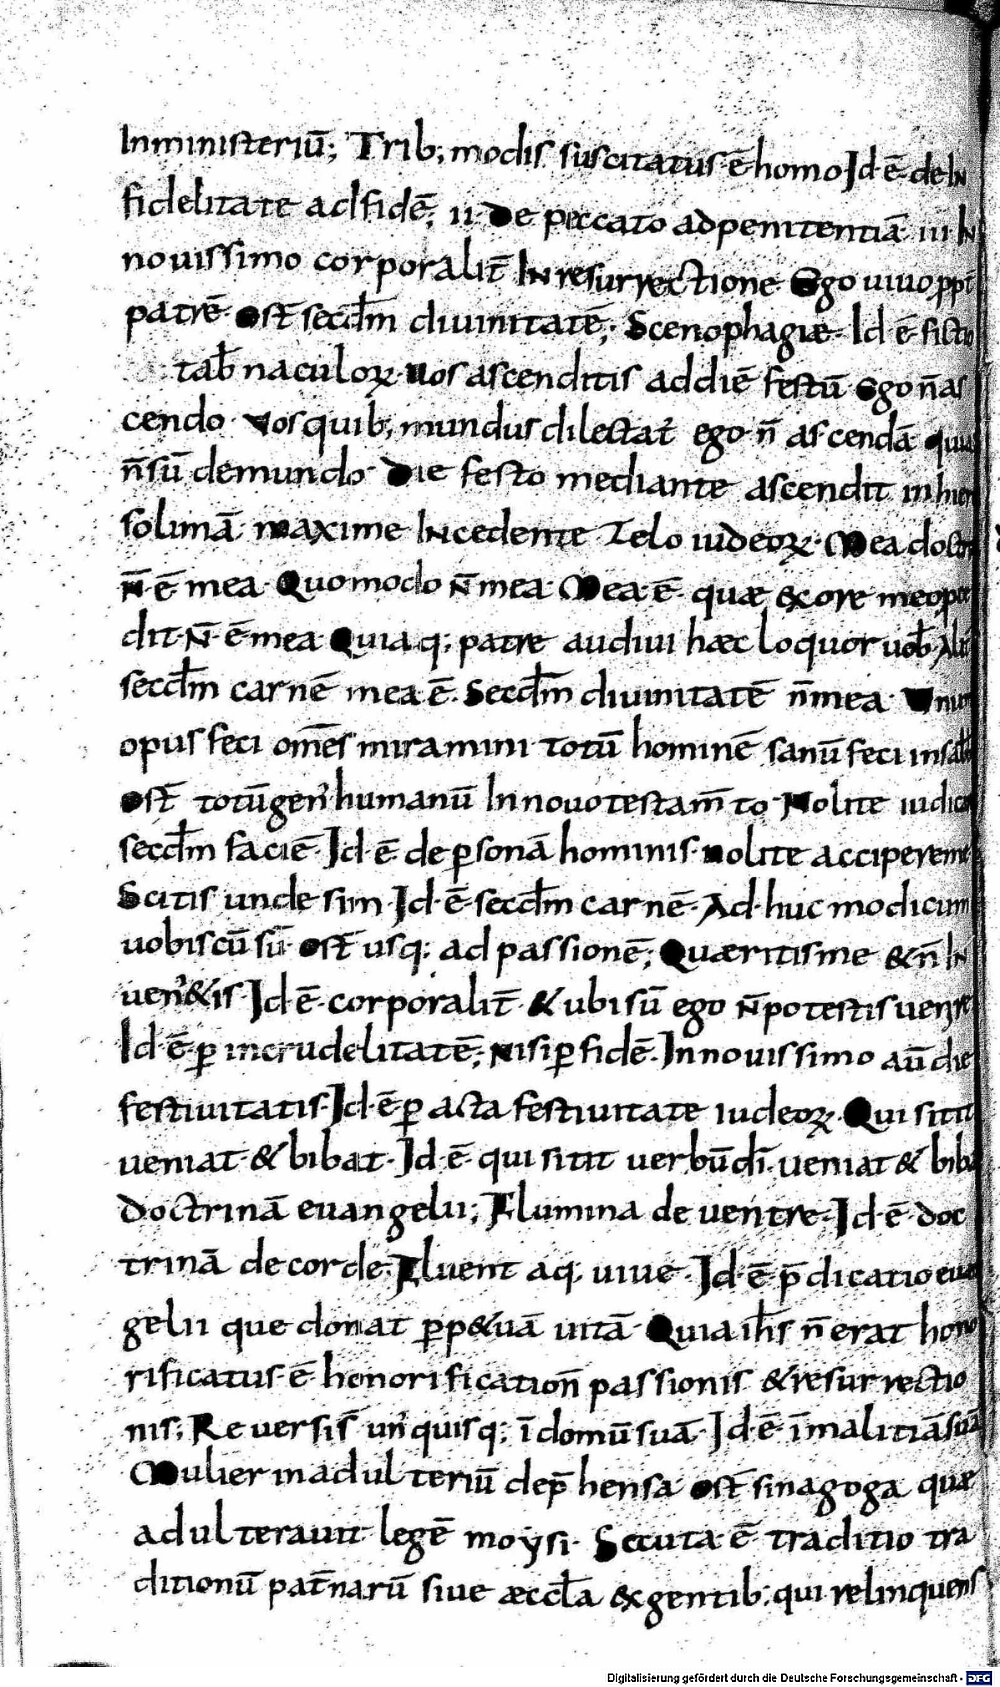 Inministeriū; Trib; modis suscitatus ē homo Id ē de In
fidelitate adfidē; ii De peccato adpenitentiā iii In
nouissimo corporalit̄ In resurrectione Ego uiuo ppt
patrē ost̄ secd̄m diuinitatē; Scenophagiæ Id ē fictio
tab̄naculoꝝ uos ascenditis addiē festū Ego n̄ as
cendo Vos quib; mundus dilectat̄ ego n̄ ascendā quia
n̄ sū demundo Die festo mediante ascendit in hiero
solimā maxime Incedente Zelo iudeoꝝ Mea doctr
n̄ ē mea Quomodo n̄ mea Mea ē quæ &xore meo proce
dit N̄ ē mea Quia q; patre audiui hæc loquor uob̄ Alit
secd̄m carnē mea ē Secd̄m diuinitatē n̄ mea Unum
opus feci om̄es miramini totū hominē sanū feci in sab̄
ost̄ totū gen' humanū In nouo testam̄to Nolite iudica
secd̄m faciē Id ē de ꝑsonā hominis nolite accipere me
Scitis unde sim Id ē secd̄m carnē Ad huc modicum
uobiscū sū ost̄ usq; ad passionē; Quæritis me & n̄ In
uen&is Id ē corporalit̄ & ubi sū ego n̄ potestis uenire
Id ē ꝑ incrudelitatē; nisi ꝑ fidē In nouissimo aū die
festiuitatis Id ē ꝑ acta festiuitate iudeoꝝ Qui sitit
ueniat & bibat Id ē qui sitit uerbū dī ueniat & biba
doctrinā euangelii; Flumina de uentre Id ē doc
trinā de corde Fluent aq; uiue Id ē p̄dicatio euā
gelii que donat ꝑp&uā uitā Quia ih̄s n̄ erat hono
rificatus ē honorification̄ passionis & resurrectio
nis; Reuersis̄ un'quisq; ī domū suā Id ē ī malitiā suā
Mulier in adulteriū dep̄hensa ost̄ sinagoga quæ
adulterauit legē moysi Secuta ē traditio tra
ditionū pat̄narū siue æccl̄a &xgentib; qui relinquens
Digitalisierung gefördert durch die Deutsche Forschungsgemeinschaft - DFG